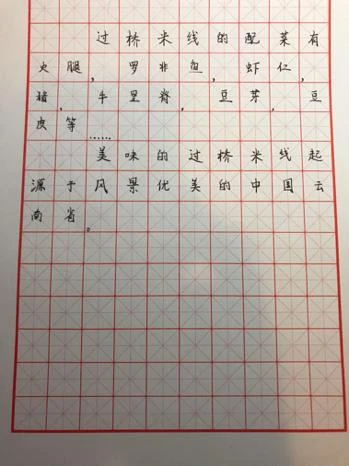 过桥米线的配菜有
火腿，罗非鱼，虾仁，
猪，牛里脊，豆芽，豆
皮等……
美味的过桥米线起
源于风景优美的中国云
南省。